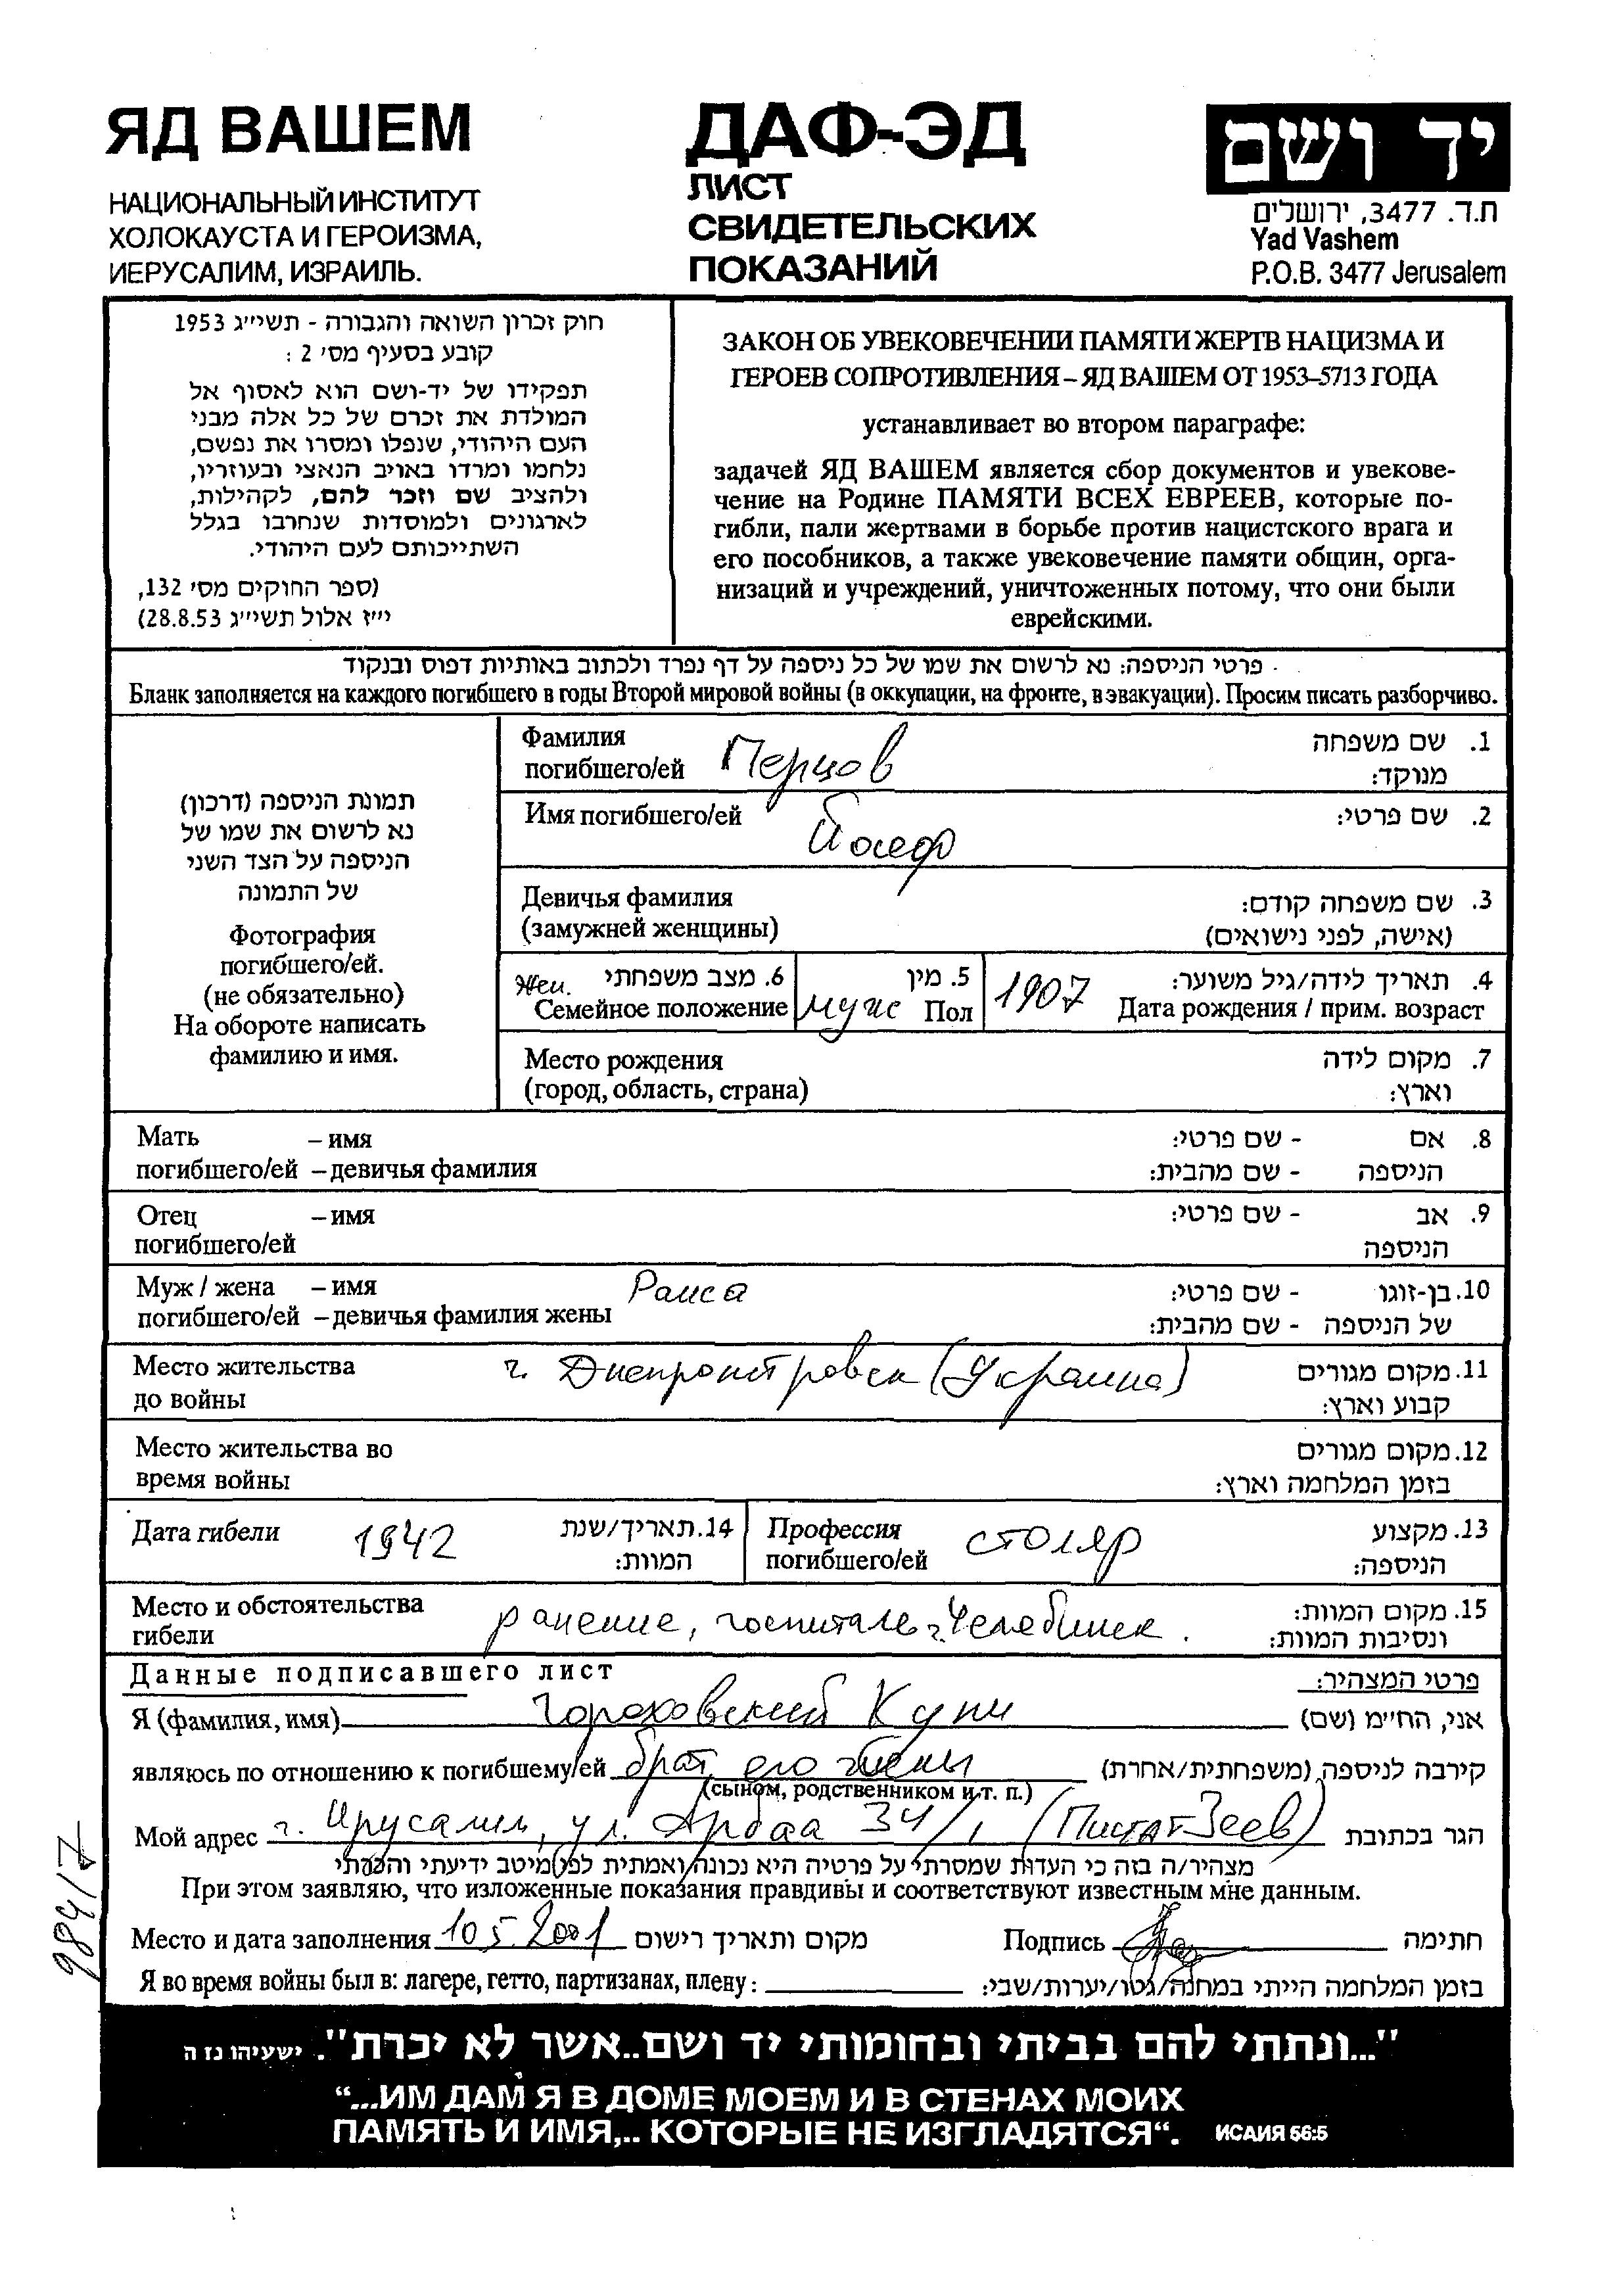 ЯД ВАШЕМ
НАЦИОНАЛЬНЫЙ ИНСТИТУТ
ХОЛОКАУСТА И ГЕРОИЗМА,
ИЕРУСАЛИМ, ИЗРАИЛЬ.
ДАФ-ЭД
ЛИСТ
СВИДЕТЕЛЬСКИХ
ПОКАЗАНИЙ
יד ושם
ת.ד. 3477, ירושלים
Yad Vashem
P.O.B. 3477 Jerusalem
חוק זכרון השואה והגבורה - תשי״ג 1953
קובע בסעיף מס׳ 2 :
תפקידו של יד-ושם הוא לאסוף אל
המולדת את זכרם של כל אלה מבני
העם היהודי, שנפלו ומסרו את נפשם,
נלחמו ומרדו באויב הנאצי ובעוזריו,
ולהציב שם וזכר להם, לקהילות,
לארגונים ולמוסדות שנחרבו בגלל
השתייכותם לעם היהודי.
(ספר החוקים מס׳ 132,
י״ז אלול תשי״ג 28.8.53)
ЗАКОН ОБ УВЕКОВЕЧЕНИИ ПАМЯТИ ЖЕРТВ НАЦИЗМА И
ГЕРОЕВ СОПРОТИВЛЕНИЯ – ЯД ВАШЕМ ОТ 1953–5713 ГОДА
устанавливает во втором параграфе:
задачей ЯД ВАШЕМ является сбор документов и увекове-
чение на Родине ПАМЯТИ ВСЕХ ЕВРЕЕВ, которые по-
гибли, пали жертвами в борьбе против нацистского врага и
его пособников, а также увековечение памяти общин, орга-
низаций и учреждений, уничтоженных потому, что они были
еврейскими.
פרטי הניספה: נא לרשום את שמו של כל ניספה על דף נפרד ולכתוב באותיות דפוס ובנקוד
Бланк заполняется на каждого погибшего в годы Второй мировой войны (в оккупации, на фронте, в эвакуации). Просим писать разборчиво.
תמונת הניספה (דרכון)
נא לרשום את שמו של
הניספה על הצד השני
של התמונה
Фотография
погибшего/ей.
(не обязательно)
На обороте написать
фамилию и имя.
Фамилия 1. שם משפחה
погибшего/ей Перцов מנוקד:
Имя погибшего/ей Йосеф 2. שם פרטי:
Девичья фамилия 3. שם משפחה קודם:
(замужней женщины) (אישה, לפני נישואים)
жен. 6. מצב משפחתי 5. מין 4. תאריך לידה/גיל משוער:
Семейное положение муж Пол 1907 Дата рождения / прим. возраст
Место рождения 7. מקום לידה
(город, область, страна) וארץ:
Мать – имя 8. אם - שם פרטי:
погибшего/ей – девичья фамилия הניספה - שם מהבית:
Отец – имя 9. אב - שם פרטי:
погибшего/ей הניספה
Муж / жена – имя Раиса 10. בן-זוגו - שם פרטי:
погибшего/ей – девичья фамилия жены של הניספה - שם מהבית:
Место жительства г. Днепропетровск (Украина) 11. מקום מגורים
до войны קבוע וארץ:
Место жительства во 12. מקום מגורים
время войны בזמן המלחמה וארץ:
Дата гибели 1942 14. תאריך/שנת המוות:
Профессия погибшего/ей столяр 13. מקצוע הניספה:
Место и обстоятельства 15. מקום המוות:
гибели ранение, госпиталь г. Челябинск. ונסיבות המוות:
Данные подписавшего лист פרטי המצהיר:
Я (фамилия, имя) Гороховский Куни אני, החי״מ (שם)
являюсь по отношению к погибшему/ей брат его жены קירבה לניספה (משפחתית/אחרת)
(сыном, родственником и т. п.)
Мой адрес г. Ирусалим, ул. Арбаа 34/1 (Писгат-Зеев) הגר בכתובת
מצהיר/ה בזה כי העדות שמסרתי על פרטיה היא נכונה ואמתית לפי מיטב ידיעתי והכרתי
При этом заявляю, что изложенные показания правдивы и соответствуют известным мне данным.
Место и дата заполнения 10.5.2001 מקום ותאריך רישום Подпись חתימה
Я во время войны был в: лагере, гетто, партизанах, плену: בזמן המלחמה הייתי במחנה/גטו/יערות/שבי:
984/17
"...ונתתי להם בביתי ובחומותי יד ושם..אשר לא יכרת". ישעיהו נז ה
“...ИМ ДАМ Я В ДОМЕ МОЕМ И В СТЕНАХ МОИХ
ПАМЯТЬ И ИМЯ,.. КОТОРЫЕ НЕ ИЗГЛАДЯТСЯ“. ИСАИЯ 56:5